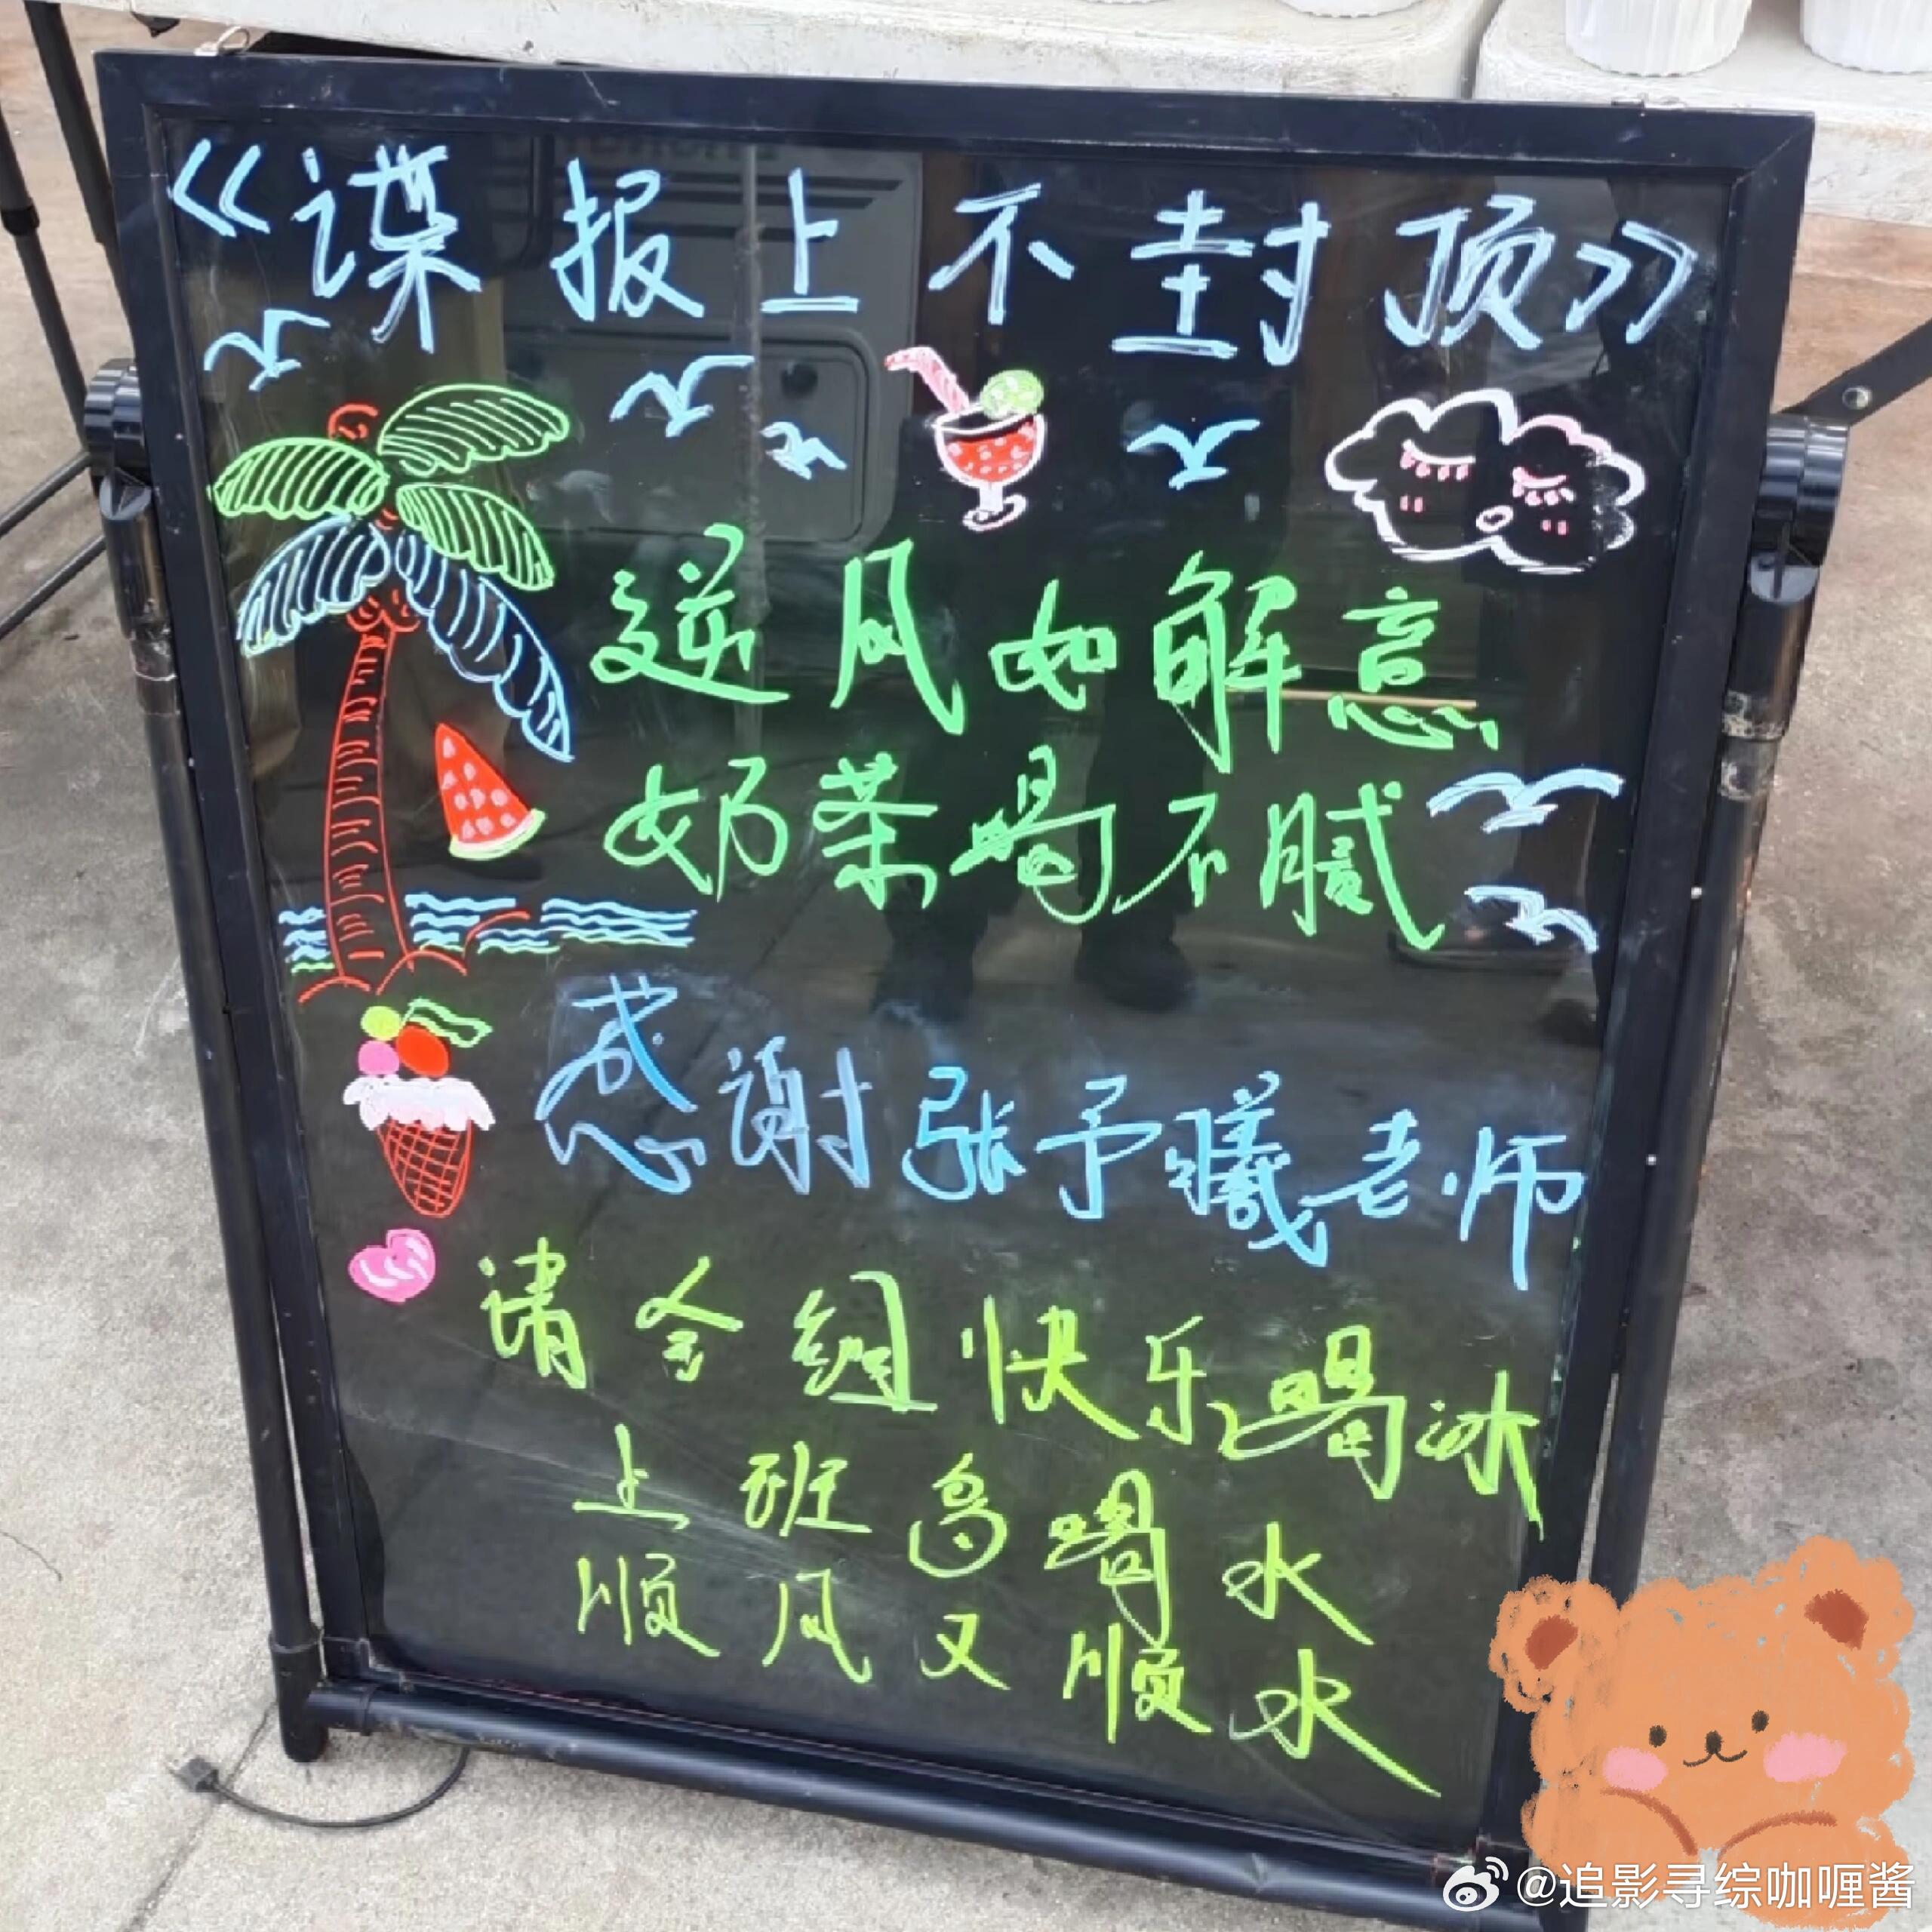 《谍报上不封顶》
逆风如解意
奶茶喝不腻
感谢张予曦老师
请全组快乐喝冰
上班高喝水
顺风又顺水
@追影寻综咖喱酱